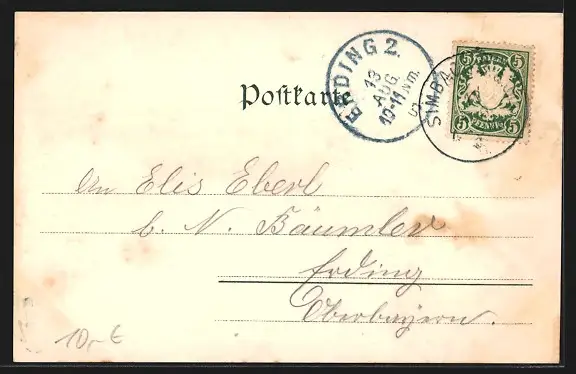 ERDING 2.
13
AUG.
10-11 Nm.
SIMBA
5 BAYERN 5
5 PFENNIG 5
Postkarte
An Elis Eberl
b. N. Bäumler
Erding
Oberbayern.
10,- €